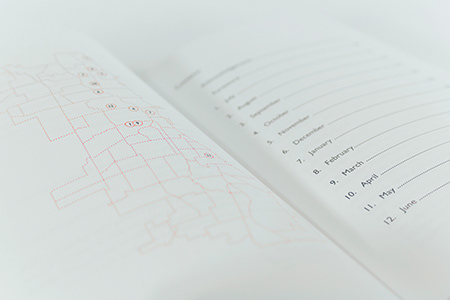 1. July
2. August
3. September
4. October
5. November
6. December
7. January
8. February
9. March
10. April
11. May
12. June